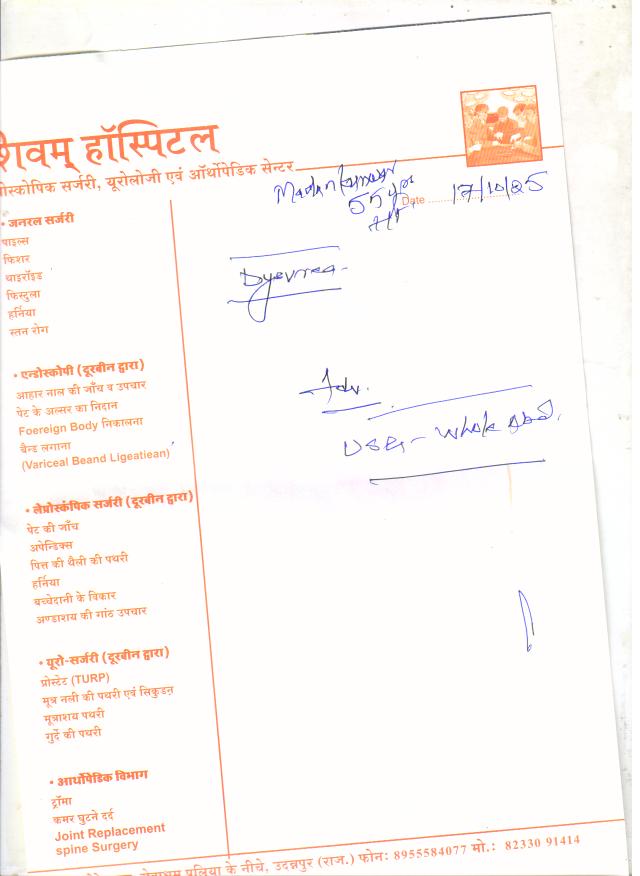 शिवम् हॉस्पिटल
ोस्कोपिक सर्जरी, यूरोलोजी एवं ऑर्थोपेडिक सेन्टर
55 yrs
Date 17/10/25
• जनरल सर्जरी
पाइल्स
फिशर
थाइरॉइड
फिस्टुला
हर्निया
स्तन रोग
Adv.
USG - Whole Abd.
• एन्डोस्कोपी (दूरबीन द्वारा)
आहार नाल की जाँच व उपचार
पेट के अल्सर का निदान
Foereign Body निकालना
बैन्ड लगाना
(Variceal Beand Ligeatiean)
• लेप्रोस्कंपिक सर्जरी (दूरबीन द्वारा)
पेट की जाँच
अपेन्डिक्स
पित्त की थैली की पथरी
हर्निया
बच्चेदानी के विकार
अण्डाशय की गांठ उपचार
• यूरो-सर्जरी (दूरबीन द्वारा)
प्रोस्टेट (TURP)
मूत्र नली की पथरी एवं सिकुडन
मूत्राशय पथरी
गुर्दे की पथरी
• आर्थोपेडिक विभाग
ट्रॉमा
कमर घुटने दर्द
Joint Replacement
spine Surgery
पुलिया के नीचे, उदन्नपुर (राज.) फोन: 8955584077 मो.: 82330 91414